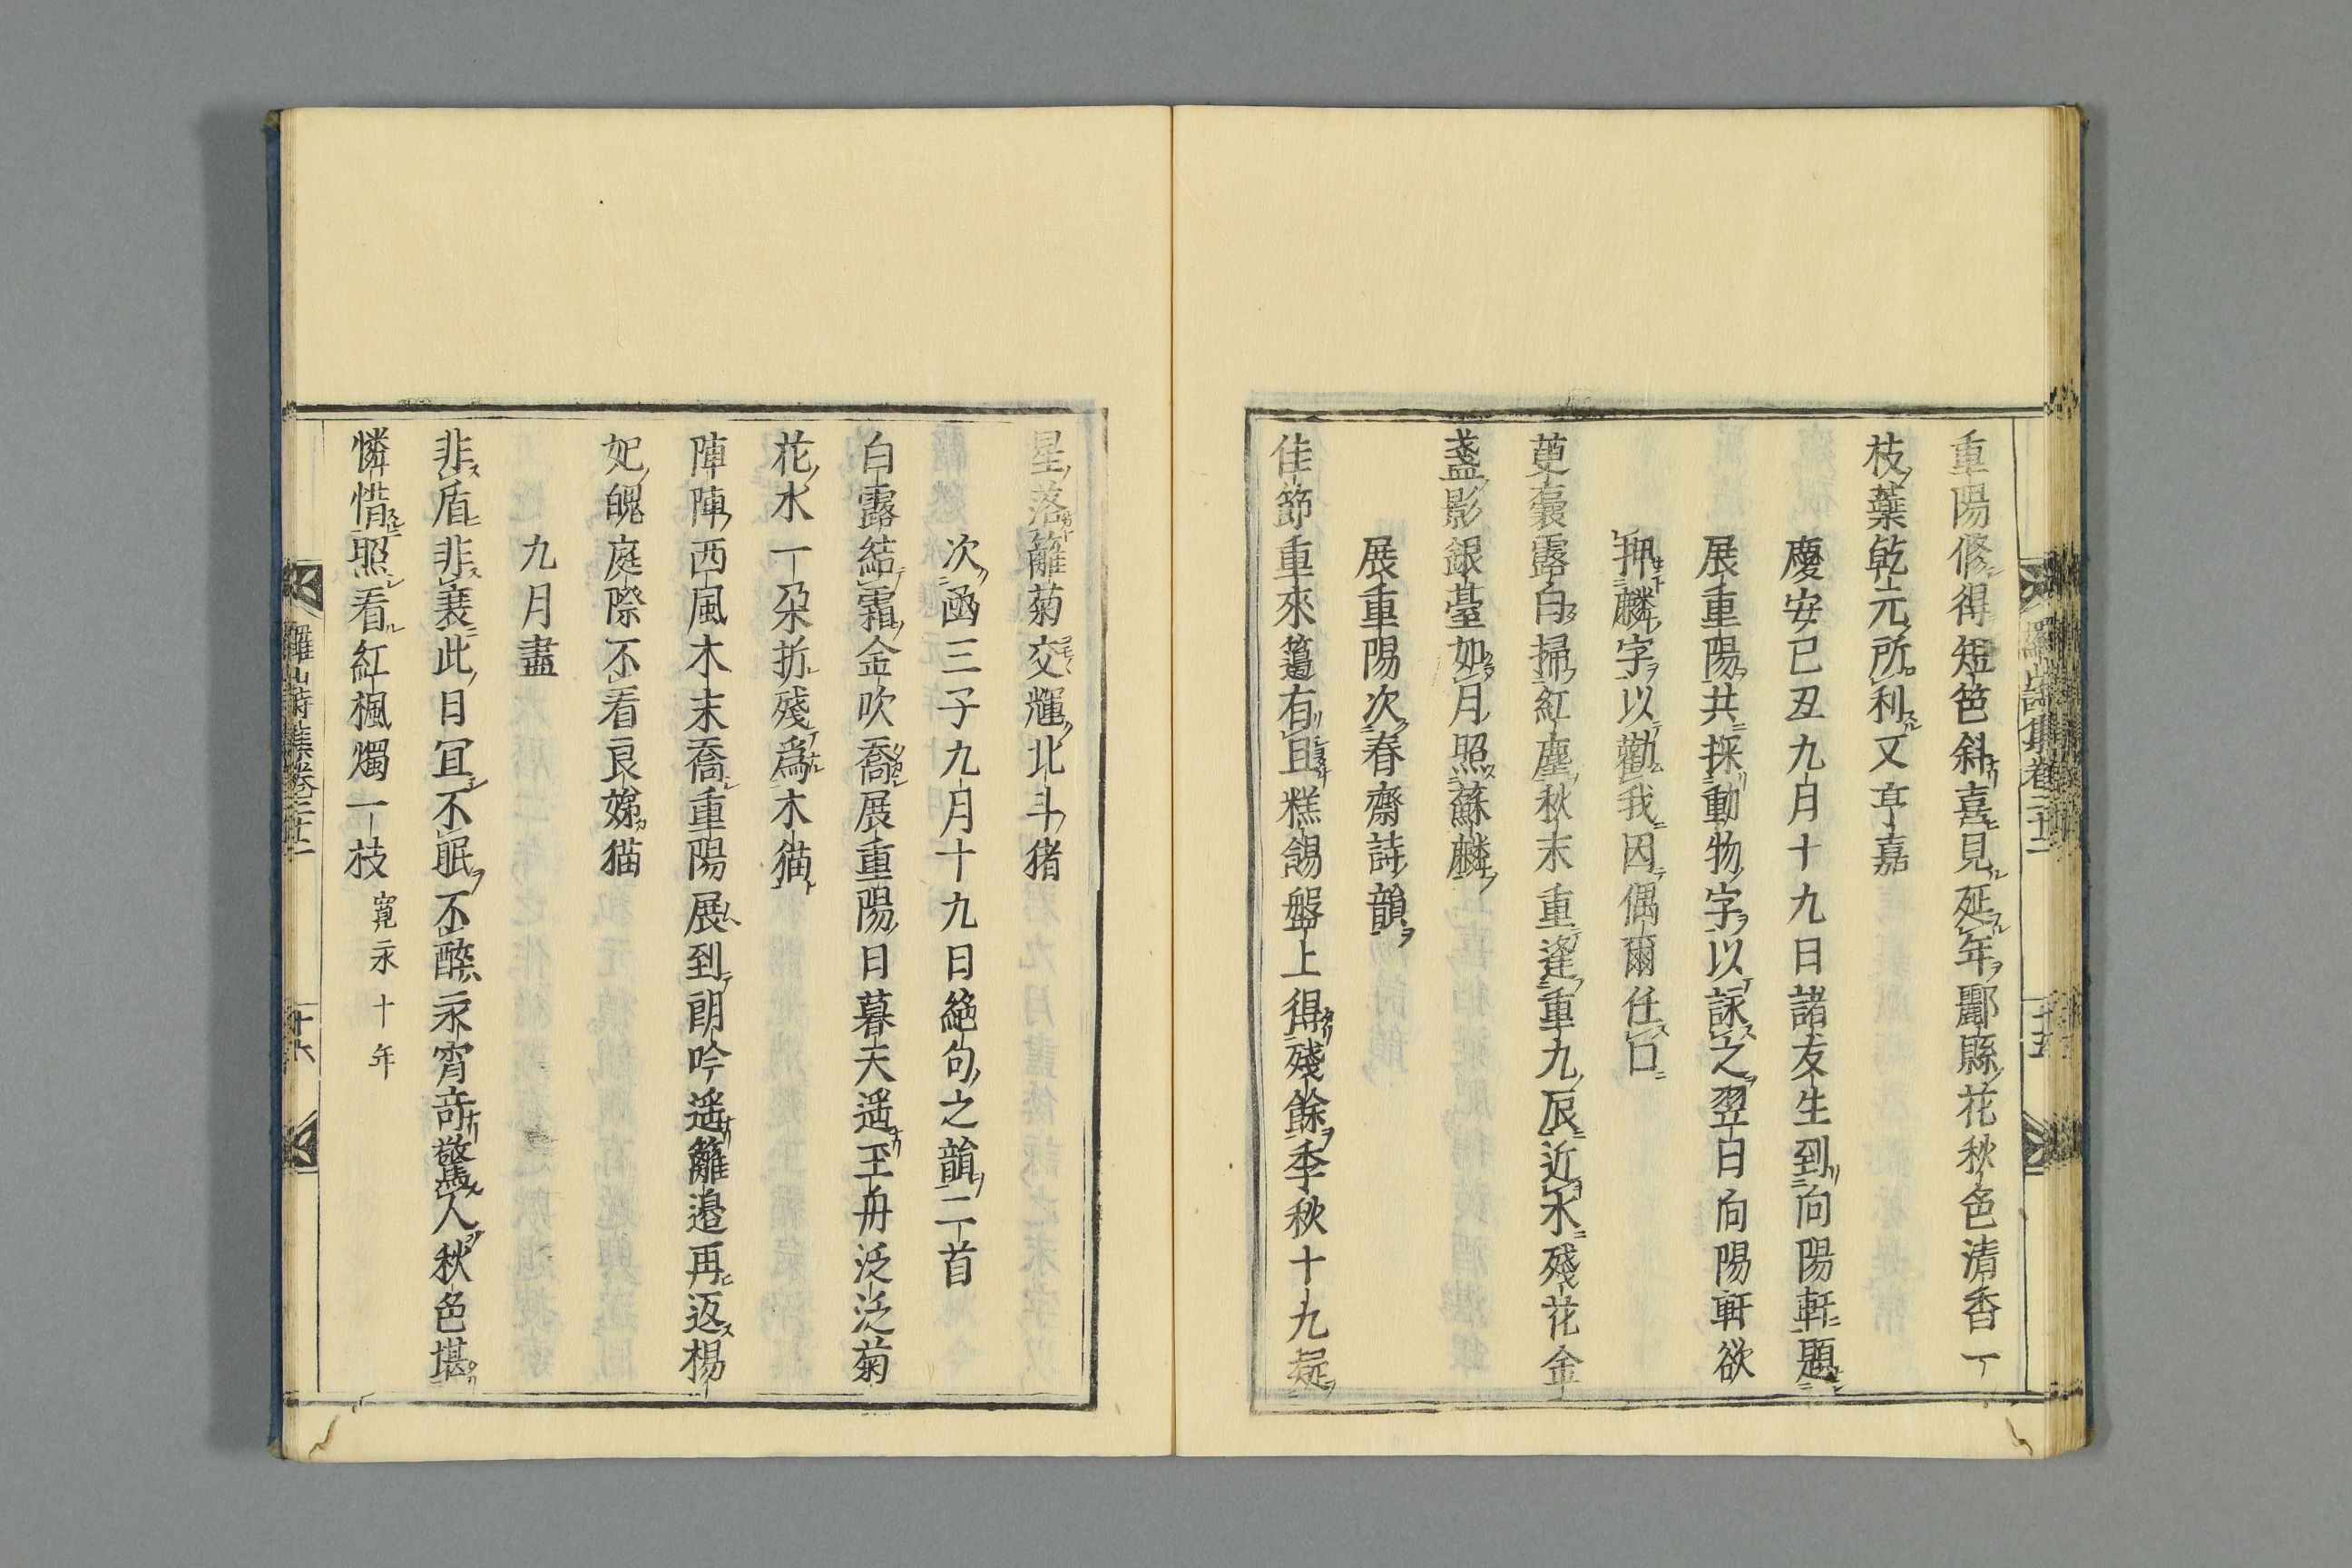 重陽修得短笆斜喜見延年酈縣花秋色清香一
枝葉乾元所利又亨嘉
慶安己丑九月十九日諸友生到向陽軒題
展重陽共採動物字以詠之翌日向陽軒欲
押麟字以勸我因偶爾任口
萸囊露白掃紅塵秋末重逢重九辰近水殘花金
盞影銀臺如月照蘇麟
展重陽次春齋詩韻
佳節重來簋有且糕餳盤上得殘餘季秋十九疑
羅山詩集卷二十二
十五
星落籬菊交輝北斗猪
次函三子九月十九日絕句之韻二首
白露結霜金吹喬展重陽日暮天遥玉舟泛泛菊
花水一朶折殘爲木猫
陣陣西風木末喬重陽展到朗吟遥籬邉再返楊
妃魄庭際不看良娣猫
九月盡
非盾非襄此日冝不眠不醉永宵竒驚人秋色堪
憐惜照看紅楓燭一枝 寛永十年
羅山詩集卷二十二
十六